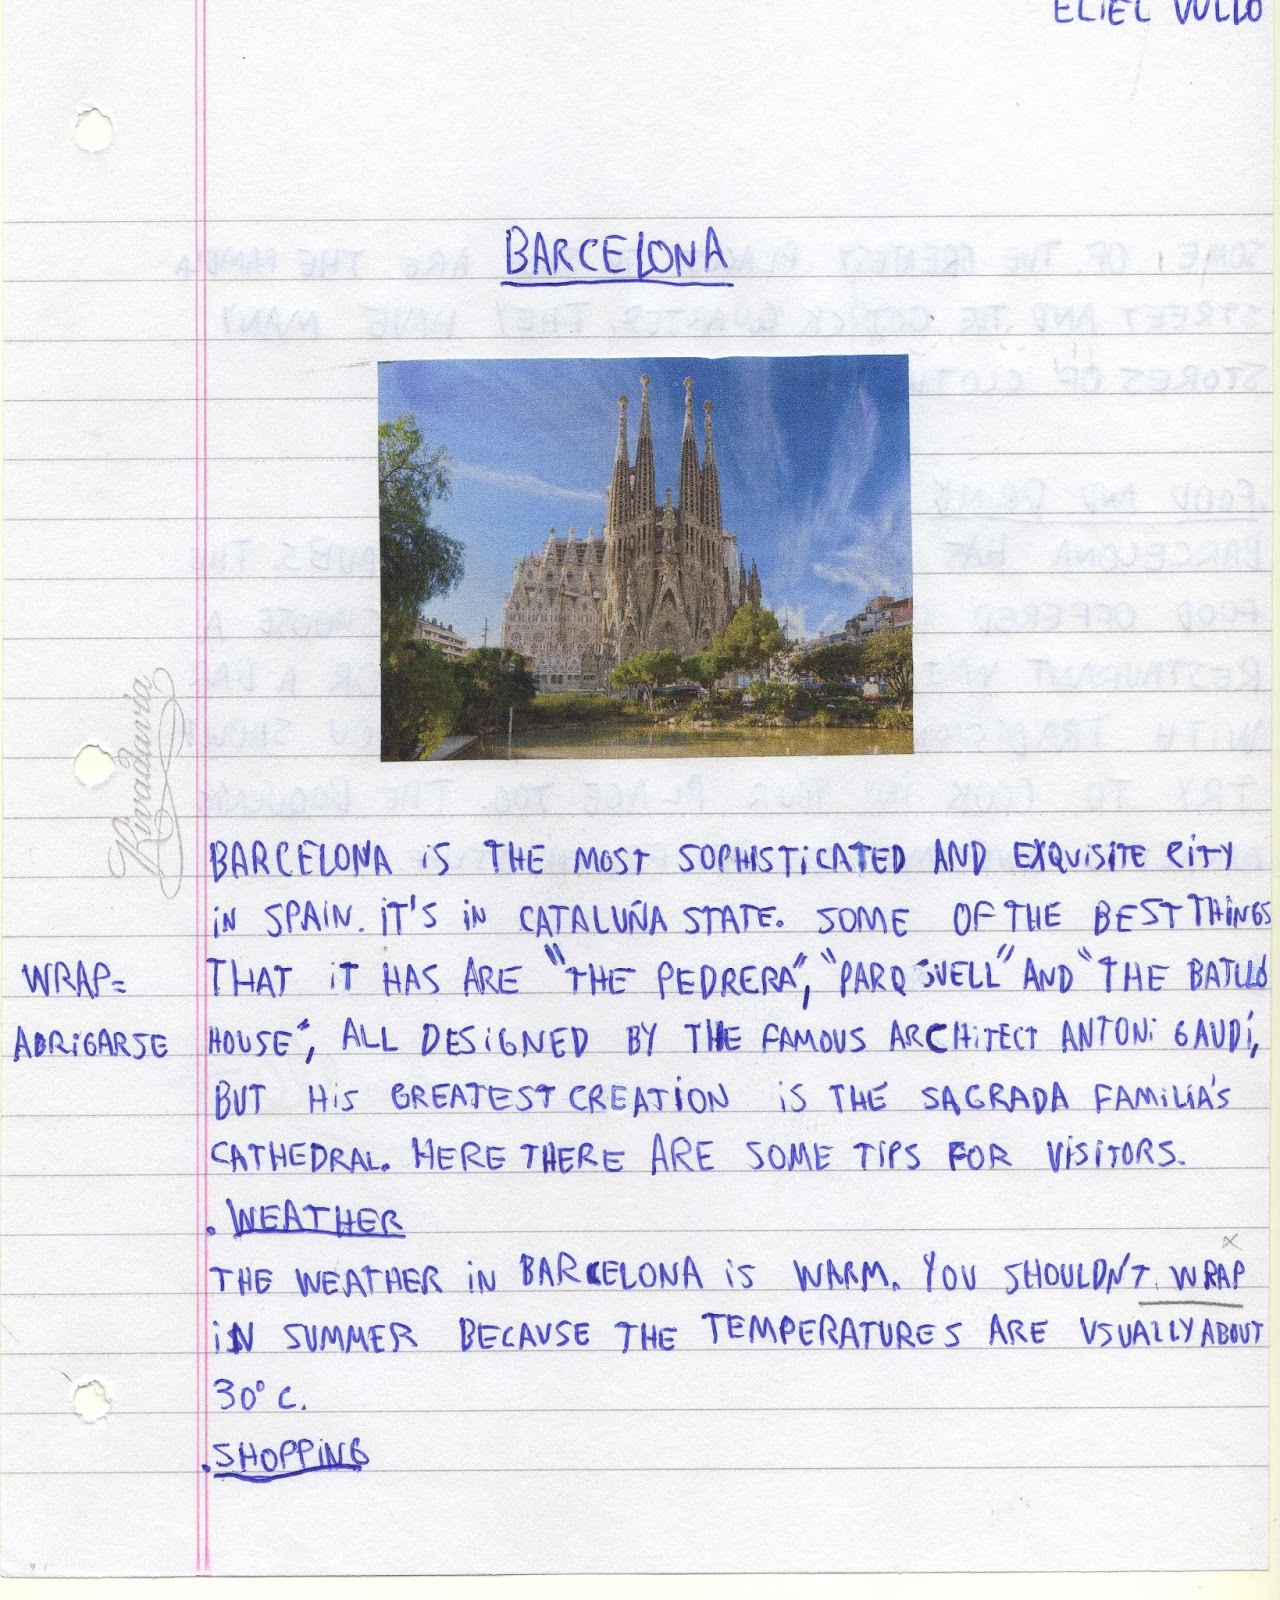 ELIEL VULLO
BARCELONA
BARCELONA IS THE MOST SOPHISTICATED AND EXQUISITE CITY
IN SPAIN. IT'S IN CATALUÑA STATE. SOME OF THE BEST THINGS
THAT IT HAS ARE "THE PEDRERA", "PARQ GUELL" AND "THE BATLLÓ
HOUSE", ALL DESIGNED BY THE FAMOUS ARCHITECT ANTONI GAUDÍ,
BUT HIS GREATEST CREATION IS THE SAGRADA FAMILIA'S
CATHEDRAL. HERE THERE ARE SOME TIPS FOR VISITORS.
. WEATHER
THE WEATHER IN BARCELONA IS WARM. YOU SHOULDN'T WRAP
IN SUMMER BECAUSE THE TEMPERATURES ARE USUALLY ABOUT
30° C.
. SHOPPING
WRAP=
ABRIGARSE
Rivadavia